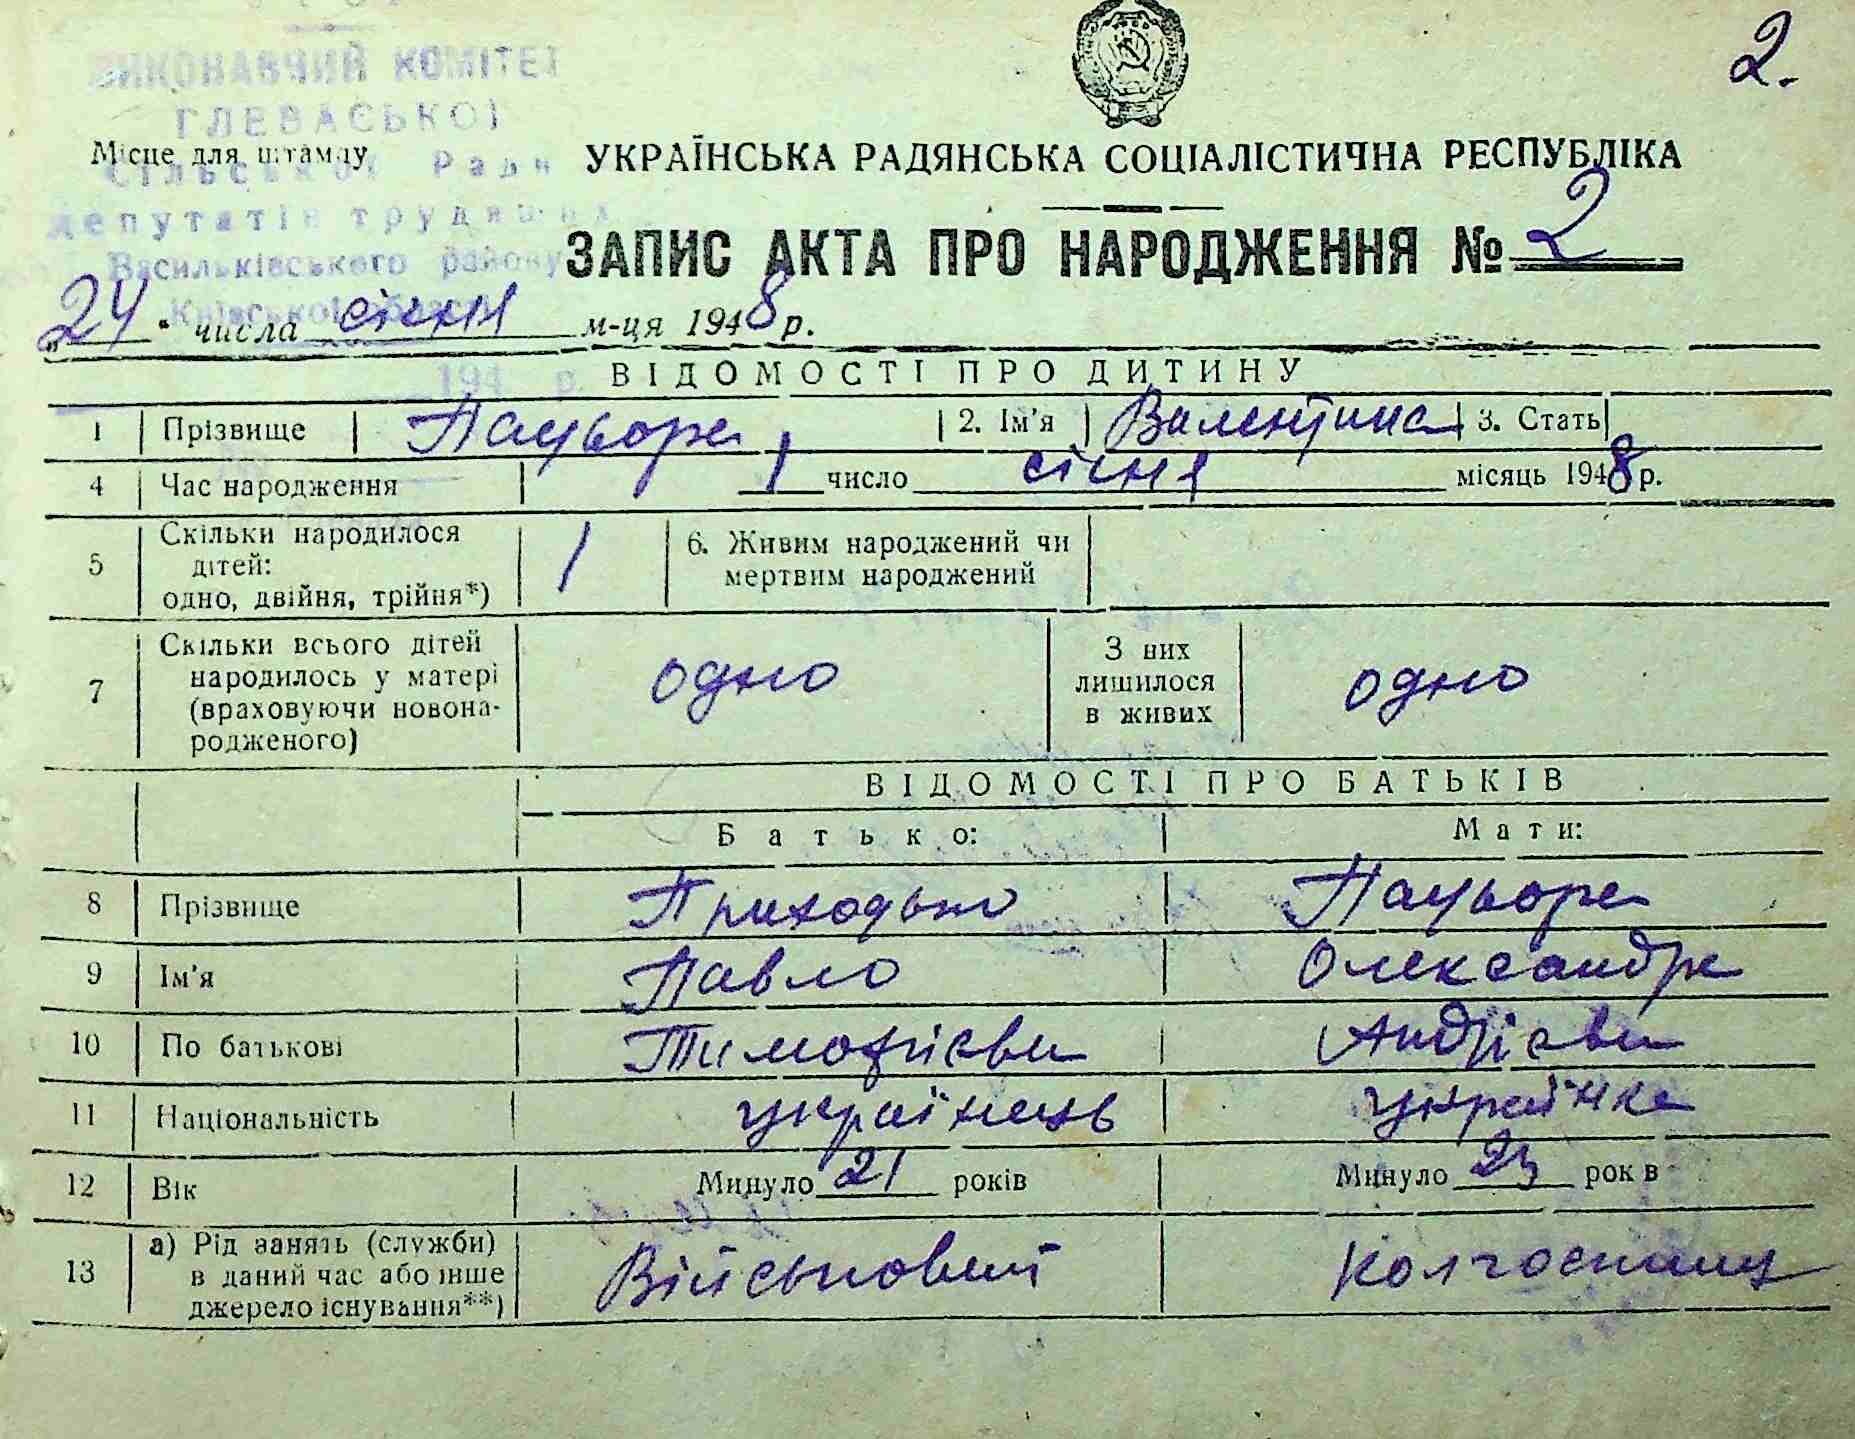 2.
ВИКОНАВЧИЙ КОМІТЕТ
ГЛЕВАСЬКОЇ
Місце для штампу
Сільської Ради
депутатів трудящих
Васильківського району
Київської області
194 р.
УКРАЇНСЬКА РАДЯНСЬКА СОЦІАЛІСТИЧНА РЕСПУБЛІКА
ЗАПИС АКТА ПРО НАРОДЖЕННЯ № 2
„24" числа січня м-ця 1948 р.
ВІДОМОСТІ ПРО ДИТИНУ
1 Прізвище Пацьора 2. Ім'я Валентина 3. Стать
4 Час народження 1 число січня місяць 1948 р.
5 Скільки народилося дітей: одно, двійня, трійня*) 1 6. Живим народжений чи мертвим народжений
7 Скільки всього дітей народилось у матері (враховуючи новона-родженого) одно З них лишилося в живих одно
ВІДОМОСТІ ПРО БАТЬКІВ
Батько: Мати:
8 Прізвище Приходько Пацьора
9 Ім'я Павло Олександра
10 По батькові Тимофієви Андрієви
11 Національність українець українка
12 Вік Минуло 21 років Минуло 23 років
13 а) Рід занять (служби) в даний час або інше джерело існування**) Військовий Колгоспниц